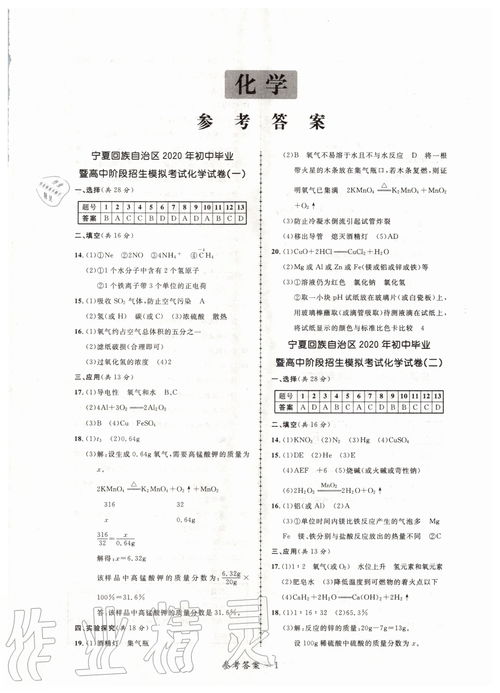 化学
参考答案
宁夏回族自治区2020年初中毕业
暨高中阶段招生模拟考试化学试卷(一)
一、选择(共28分)
题号 1 2 3 4 5 6 7 8 9 10 11 12 13
答案 B A C C B D D A D A B C D
二、填空(共16分)
14.(1)①Ne ②2NO ③4NH₄⁺ ④
(2)①1个水分子中含有2个氢原子
②1个铁离子带3个单位的正电荷
15.(1)吸收SO₂气体,防止空气污染 A
(2)氢(或H) 碳(或C) 浓硫酸 散热
16.(1)氧气约占空气总体积的五分之一
(2)滤纸破损(合理即可)
(3)过氧化氢的浓度 (4)2
三、应用(共13分)
17.(1)导电性 氧气和水 B、C
(2)4Al+3O₂══2Al₂O₃
(3)B (4)Cu FeSO₄
18.(1)t₃ (2)0.64g
(3)解:设生成0.64g氧气,需要高锰酸钾的质量为
x。
2KMnO₄ △══ K₂MnO₄+MnO₂+O₂↑
316 32
x 0.64g
316/32=x/0.64g
解得:x=6.32g
该样品中高锰酸钾的质量分数为:6.32g/20g×
100%=31.6%
答:该样品中高锰酸钾的质量分数是31.6%。
四、实验探究(共18分)
19.(1)酒精灯 集气瓶
(2)B 氧气不易溶于水且不与水反应 D 将一根
带火星的木条放在集气瓶口,若木条复燃,则证
明氧气已集满 2KMnO₄ △══ K₂MnO₄+MnO₂
+O₂↑
(3)防止冷凝水倒流引起试管炸裂
(4)移出导管 熄灭酒精灯 (5)AD
20.(1)CuO+2HCl══CuCl₂+H₂O
(2)Mg或Al或Zn或Fe(镁或铝或锌或铁)等
(3)①溶液仍为红色 氯化钠 氯化钠
②取一小块pH试纸放在玻璃片(或白瓷板)上,
用玻璃棒蘸取(或滴管吸取)待测液滴在试纸上,
将试纸显示的颜色与标准比色卡比较 4
宁夏回族自治区2020年初中毕业
暨高中阶段招生模拟考试化学试卷(二)
一、选择(共28分)
题号 1 2 3 4 5 6 7 8 9 10 11 12 13
二、填空(共16分)
14.(1)KNO₃ (2)N₂ (3)Hg (4)CuSO₄
15.(1)DE (2)He (3)E
(4)AEF +6 (5)烧碱(或火碱或苛性钠)
(6)2H₂O₂ MnO₂══ 2H₂O+O₂↑
16.(1)铝(或Al) (2)A
(3)①单位时间内镁比铁反应产生的气泡多 Mg
Fe ②镁、铁分别与盐酸反应放出的热量不同 ②C
三、应用(共13分)
17.(1)1∶2 氧气(或O₂) 水位上升 氢元素和氧元素
(2)肥皂水 (3)降低温度到可燃物的着火点以下
(4)CaH₂+2H₂O══Ca(OH)₂+2H₂↑
18.(1)1∶16∶32 (2)65.3%
(3)解:反应的锌的质量:20g-7g=13g。
设100g稀硫酸中硫酸的质量分数为x。
作业精灵
参考答案-1